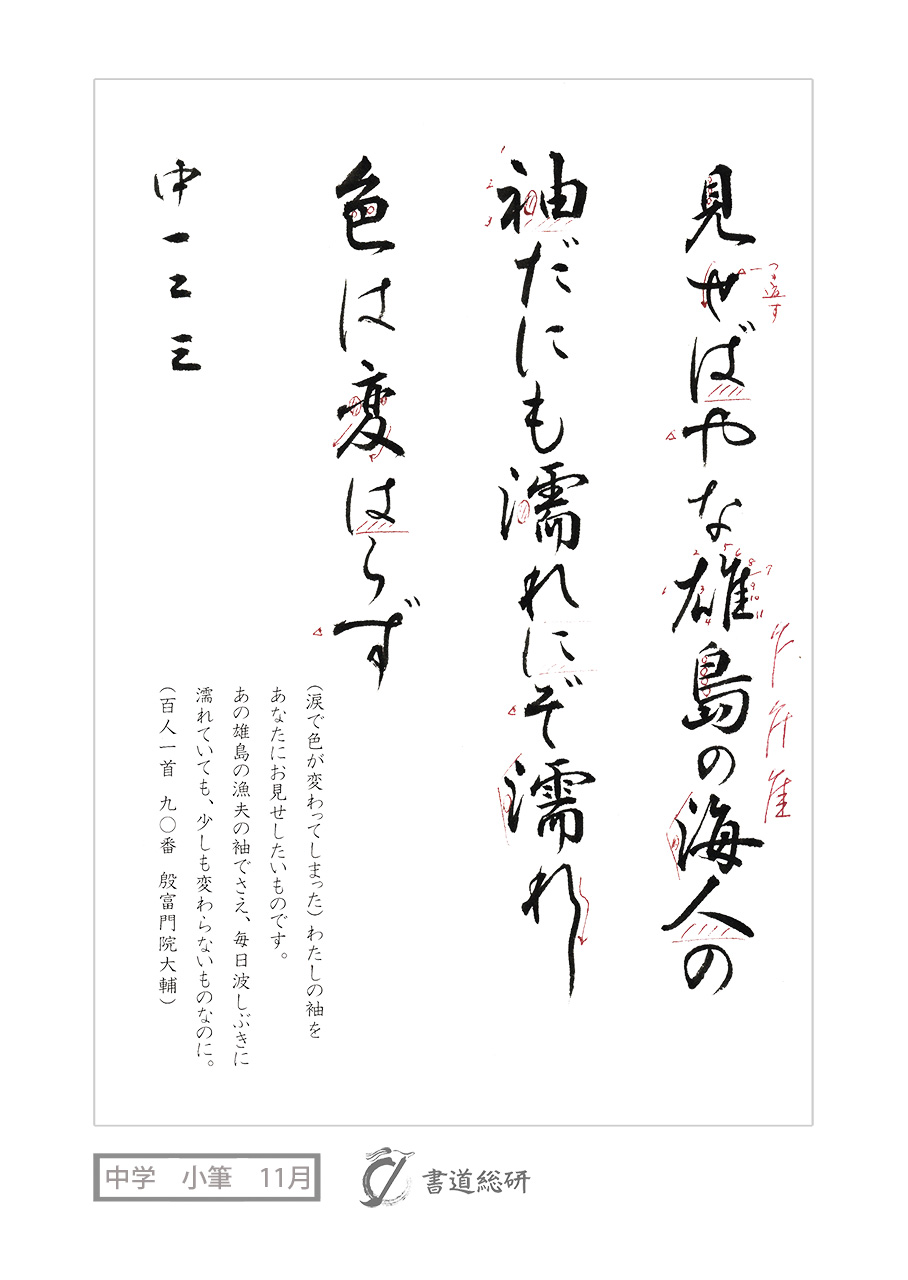 見せばやな雄島の海人の
袖だにも濡れにぞ濡れし
色は変はらず
中一二三
(涙で色が変わってしまった)わたしの袖を
あなたにお見せしたいものです。
あの雄島の漁夫の袖でさえ、毎日波しぶきに
濡れていても、少しも変わらないものなのに。
(百人一首 九〇番 殷富門院大輔)
中学 小筆 11月
書道総研